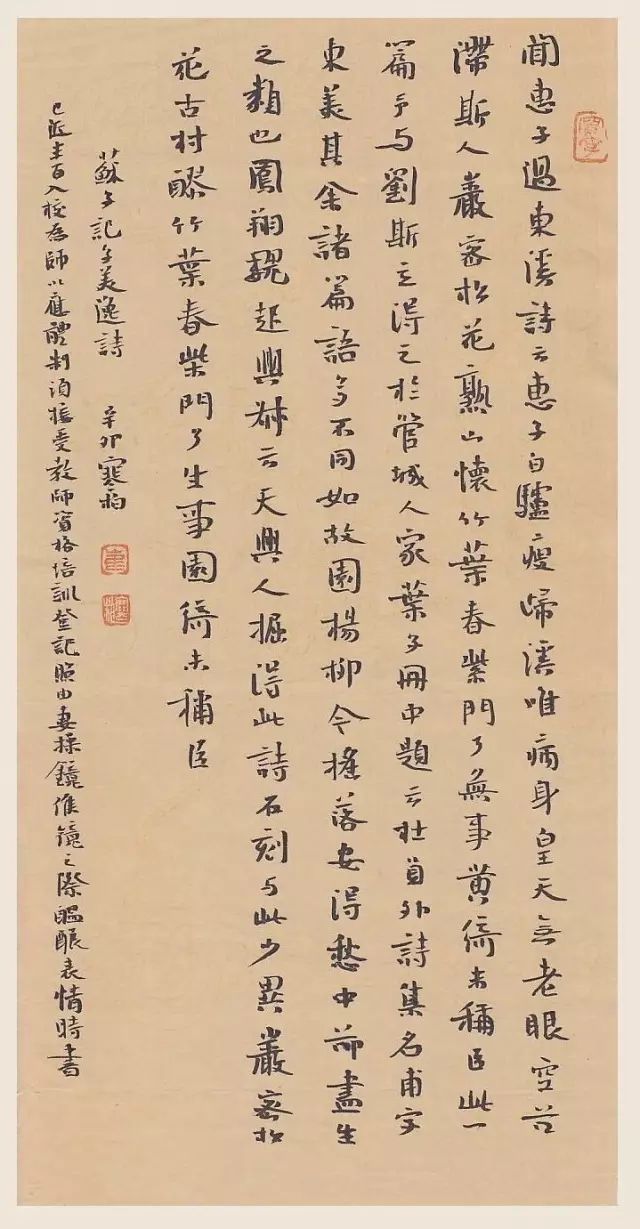 聞惠子過東溪詩云惠子白驢瘦歸溪唯病身皇天無老眼空谷
滯斯人巖密松花熟山懷竹葉春柴門了無事黄綺未稱臣此一
篇予与劉斯立得之於管城人家葉子冊中題云杜員外詩集名甫字
東美其余諸篇語多不同如故園楊柳今搖落安得愁中却盡生
之類也鳳翔魏起興叔云天興人掘得此詩石刻与此少異巖密松
花古村醪竹葉春柴門了生事園綺未稱臣
蘇子記子美逸詩 辛卯寒
已近半百入校為師以應體制須接受教師資格培訓登記照由妻操鏡候鏡之際醞釀表情時書